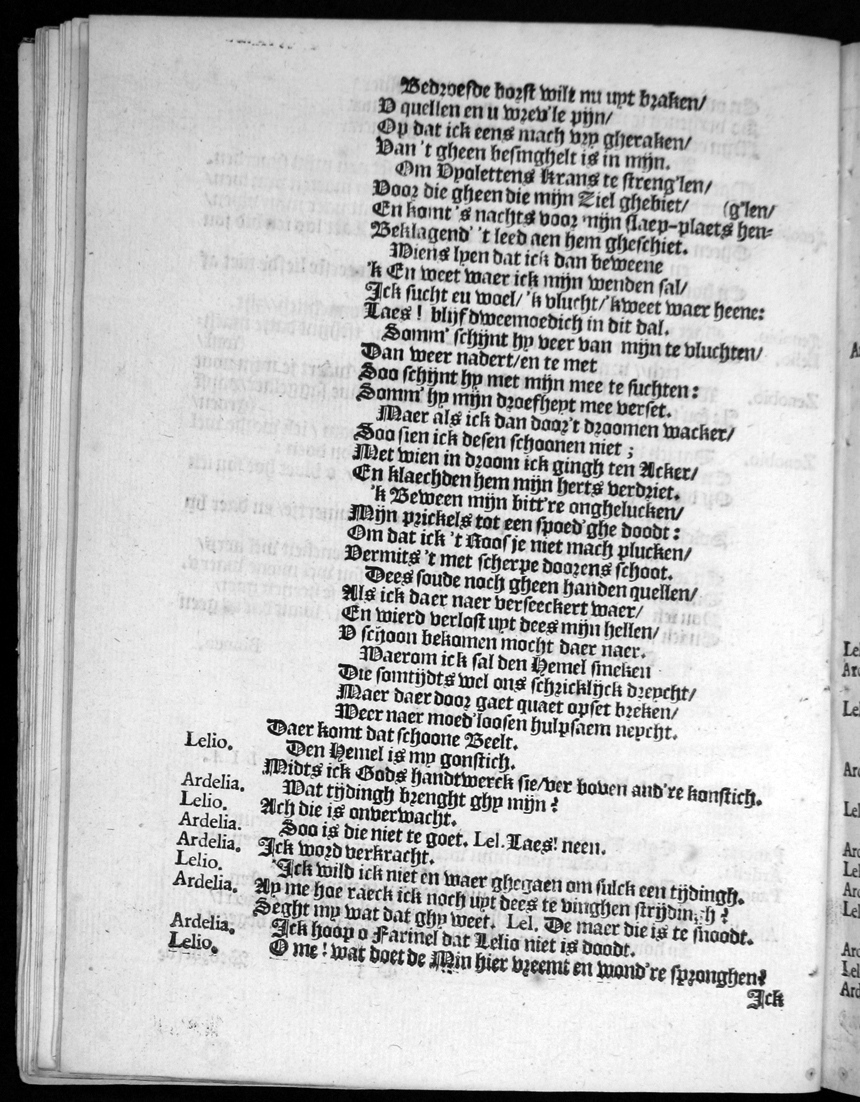 Bedroefde borst wilt nu uyt braken/
V quellen en u wrev'le pijn/
Op dat ick eens mach vry gheraken/
Van 't gheen besinghelt is in mijn.
Om Vyolettens Krans te streng'len/
Voor die gheen die mijn Ziel ghebiet/ (g'len/
En komt 's nachts voor mijn slaep-plaets hen-
Beklagend' 't leed aen hem gheschiet.
Wiens lyen dat ick dan beweene
'k En weet waer ick mijn wenden sal/
Ick sucht eu woel/ 'k vlucht/ 'kweet waer heene:
Laes! blijf dweemoedich in dit dal.
Somm' schijnt hy veer van mijn te vluchten/
Dan weer nadert/ en te met
Soo schijnt hy met mijn mee te suchten:
Somm' hy mijn droefheyt mee verset.
Maer als ick dan door't droomen wacker/
Soo sien ick desen schoonen niet;
Met wien in droom ick gingh ten Acker/
En klaechden hem mijn herts verdriet.
'k Beween mijn bitt're onghelucken/
Mijn prickels tot een spoed'ghe doodt:
Om dat ick 't Roosje niet mach plucken/
Vermits 't met scherpe doorens schoot.
Dees soude noch gheen handen quellen/
Als ick daer naer verseeckert waer/
En wierd verlost uyt dees mijn hellen/
V schoon bekomen mocht daer naer.
Waerom ick sal den Hemel smeken
Die somtijdts wel ons schricklijck dreycht/
Maer daer door gaet quaet opset breken/
Weer naer moed'loosen hulpsaem neycht.
Daer komt dat schoone Beelt.
Lelio. Den Hemel is my gonstich.
Midts ick Gods handtwerck sie/ ver boven and're konstich.
Ardelia. Wat tijdingh brenght ghy mijn?
Lelio. Ach die is onverwacht.
Ardelia. Soo is die niet te goet. Lel. Laes! neen.
Ardelia. Ick word verkracht.
Lelio. 'Ick wild ick niet en waer ghegaen om sulck een tijdingh.
Ardelia. Ay me hoe raeck ick noch uyt dees te vinghen strijdingh?
Seght my wat dat ghy weet. Lel. De maer die is te snoodt.
Ardelia. Ick hoop o Farinel dat Lelio niet is doodt.
Lelio. O me! wat doet de Min hier vreemt en wond're spronghen?
Ick